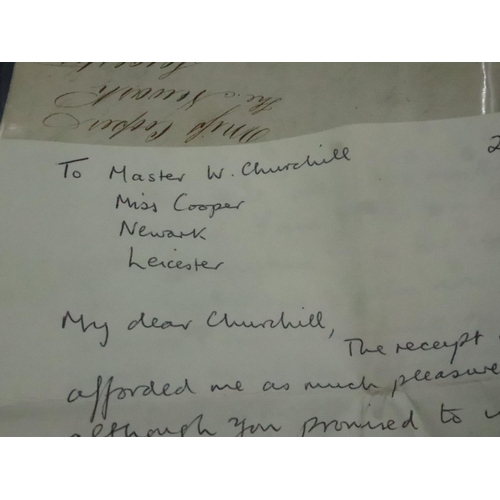 Miss Cooper
The Newark
To Master W. Churchill
2
Miss Cooper
Newark
Leicester
My dear Churchill,
The receipt
afforded me as much pleasure
although you promised to